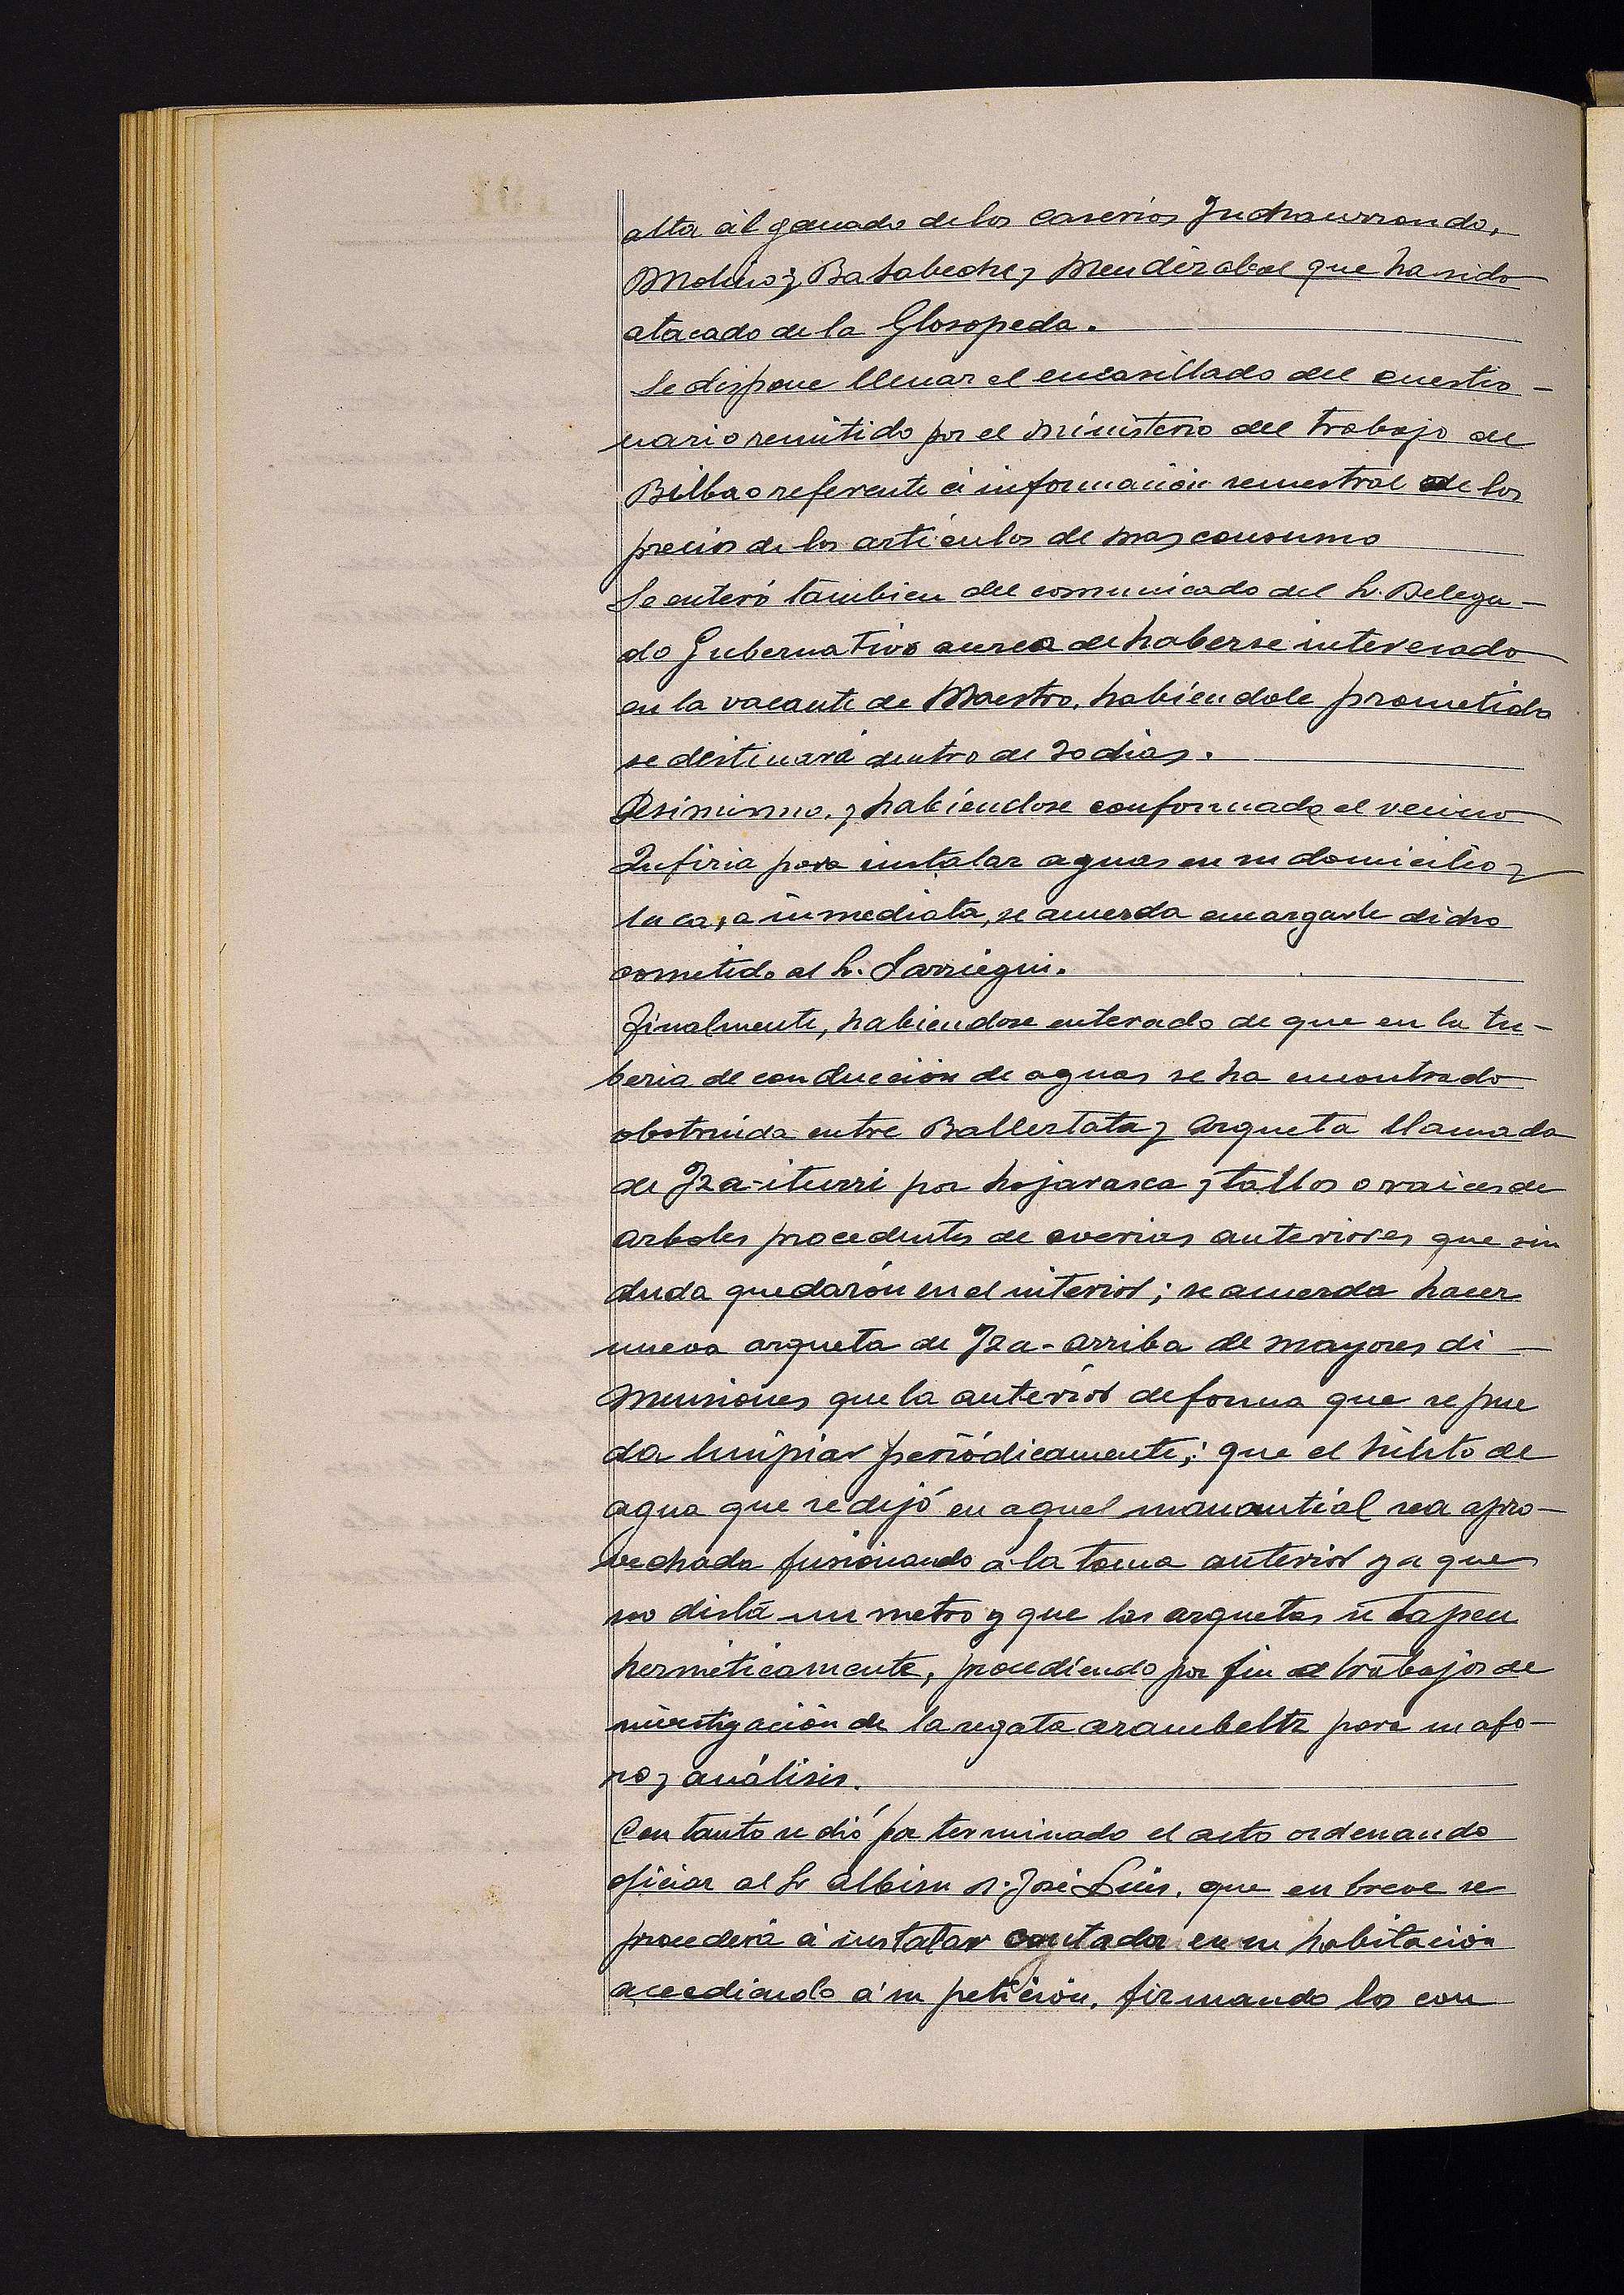 alta al ganado de los caserios Inchaurrondo,
Molino y Basabeche y Mendizabal que ha sido
atacado de la Glosopeda.
Se dispone llenar el encasillado del cuestio-
nario remitido por el Ministerio del trabajo de
Bilbao referente á información semestral de los
precios de los artículos de mas consumo
Se enteró tambien del comunicado del Sr. Delega-
do Gubernativo acerca de haberse interesado
en la vacante de Maestro, habiéndole prometido
se destinará dentro de 20 dias.
Asimismo, y habiéndose conformado el vecino
para instalar aguas en su domicilio y
la casa inmediata, se acuerda encargarle dicho
cometido al Sr. Sarriegui.
Finalmente, habiendose enterado de que en la tu-
beria de conducción de aguas se ha encontrado
obstruida entre Ballestata y Arqueta llamada
de Iza-iturri por hojarasca y tallos o raices de
arboles procedentes de averias anteriores que sin
duda quedarón en el interior; se acuerda hacer
nueva arqueta de Iza-arriba de mayores di-
mensiones que la anterior de forma que se pue
da limpiar periódicamente; que el hilito de
agua que se dejó en aquel manantial sea apro-
vechada fusionando á la toma anterior ya que
no dista un metro y que las arquetas se tapen
herméticamente, procediendo por fin a trabajos de
investigación de la regata arambeltz para su afo-
ro y análisis.
Con tanto se dió por terminado el acto ordenando
oficiar al Sr Albisu D. José Luis, que en breve se
procederá á instalar contador en su habitación
accediendo á su petición, firmando los con